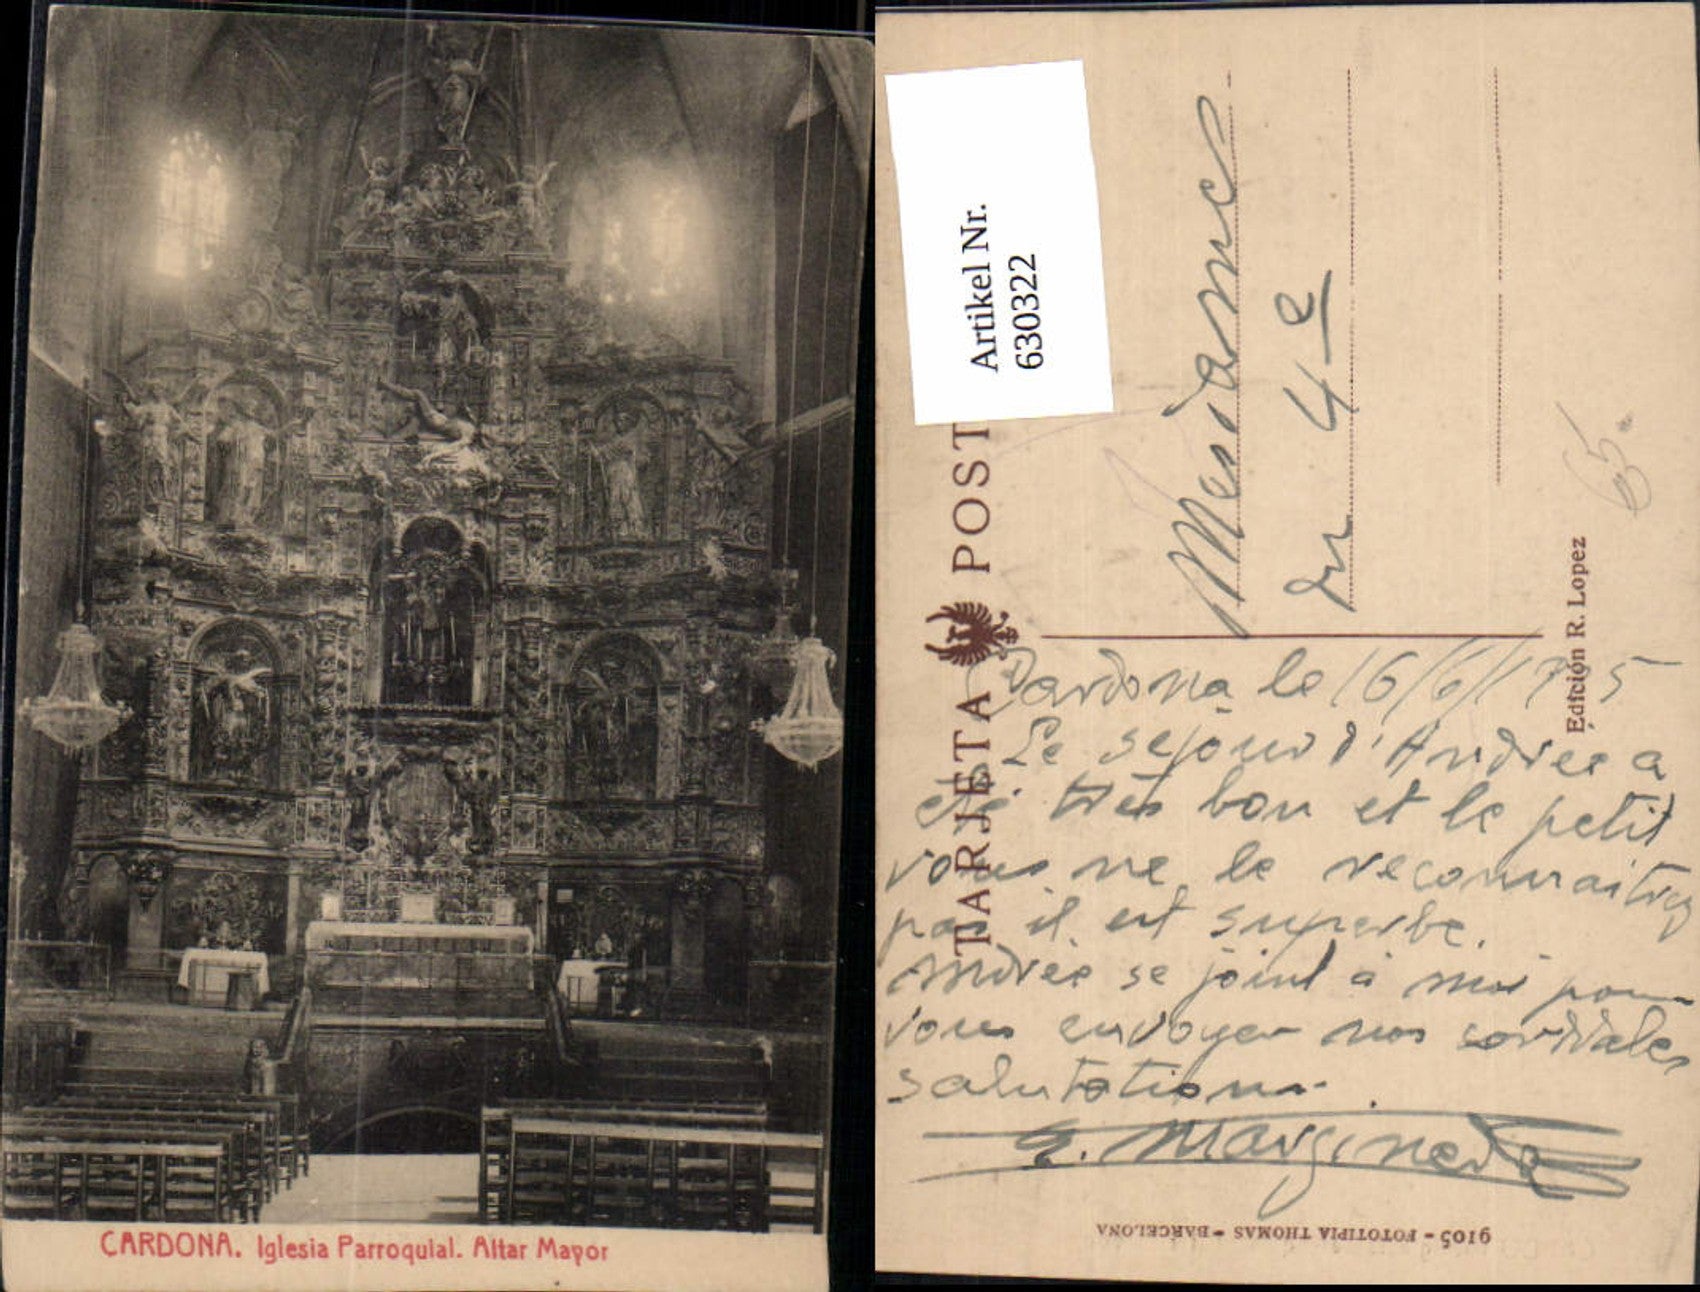 CARDONA. Iglesia Parroquial. Altar Mayor
Artikel Nr.
630322
TARJETA POST
Mesdames
du 4e
65.
Edición R. Lopez
Cardona le 16/6/
Le sejour d'Andree a
eté très bon et le petit
vous ne le reconnaitrez
pas il est superbe.
Andree se joint à moi pour
vous envoyer nos cordiales
salutations.
9105 - FOTOTIPIA THOMAS - BARCELONA